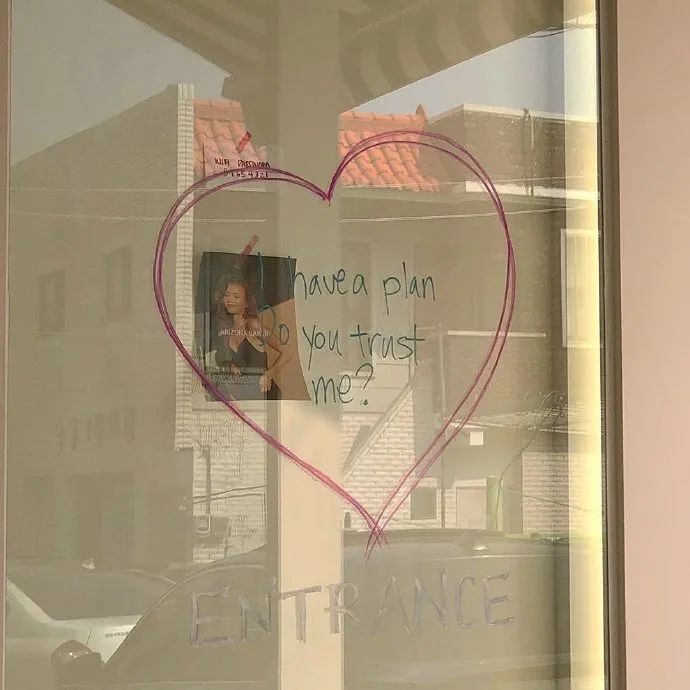 WIFI PASSWORD
I have a plan
Do you trust
me?
ARIZONA BAKER
ENTRANCE